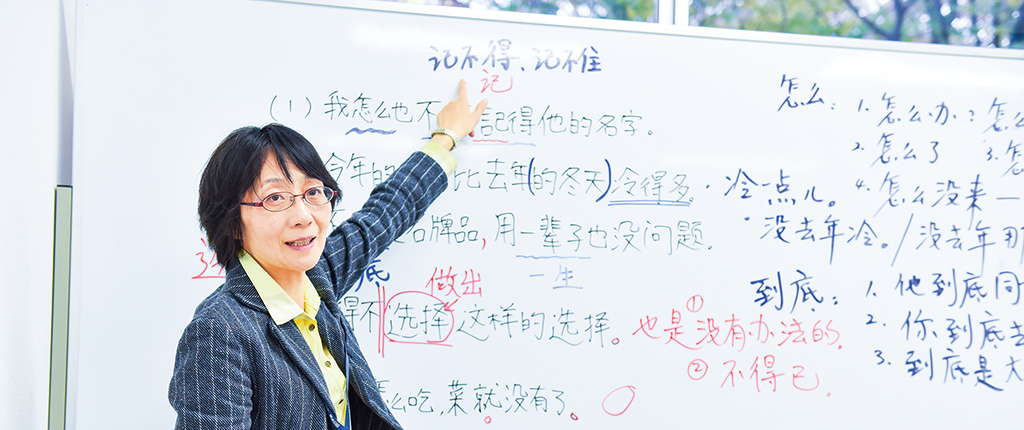 记不得、记不住
记
(1) 我怎么也不記得他的名字。
今年的 比去年(的冬天)冷得多。
名牌品,用一辈子也没问题。
一生
底
做出
得不选择这样的选择。
么吃,菜就没有了。
・冷一点儿。
・没去年冷。/没去年
①
也是没有办法的。
② 不得已
怎么: 1. 怎么办? 怎么
2. 怎么了 3. 怎
4. 怎么没来一
到底: 1. 他到底同
2. 你到底去
3. 到底是大